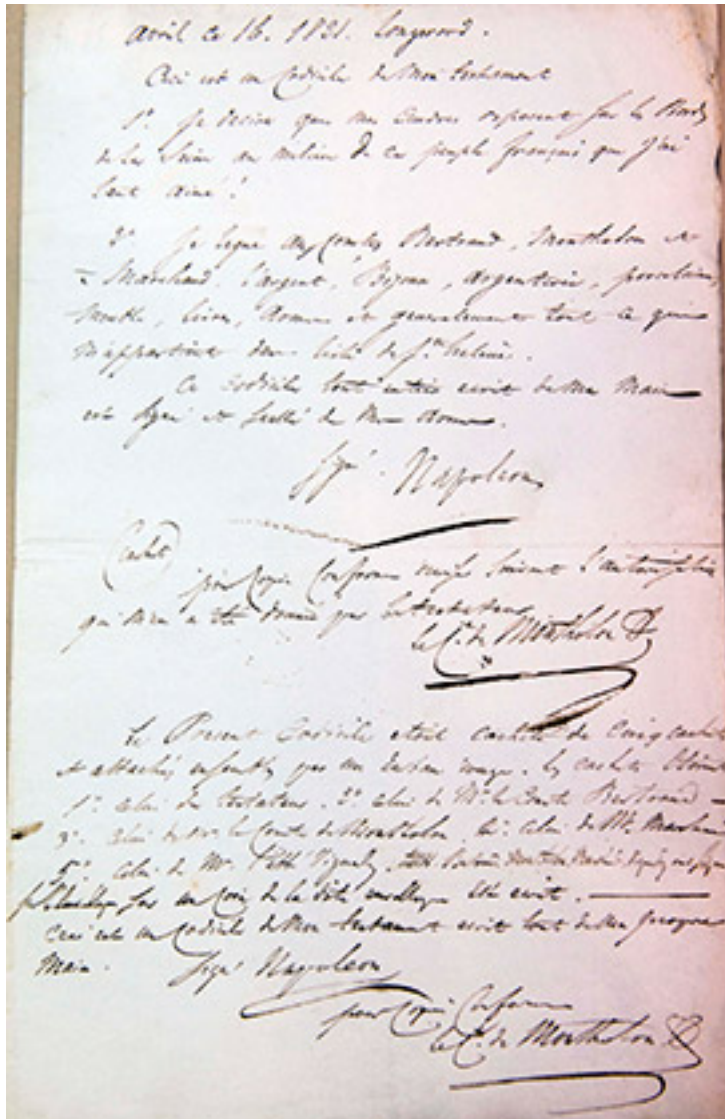 avril ce 16. 1821. Longwood.
Ceci est un Codicile de Mon testament
1°. Je desire que mes Cendres reposent sur les Bords
de la Seine au milieu de ce peuple français que j'ai
tant aimé!
2°. Je legue aux Comtes Bertrand, Montholon et
Marchand, l'argent, Bijoux, argenterie, porcelaine,
Meuble, livres, armes et generalement tout ce qui
m'appartient dans l'isle de Ste helene.
Ce Codicile tout entier ecrit de Ma Main
est signé et scellé de Mes armes.
signé. Napoleon
Cachet
pour Copie Conforme suivant
qui m'en a été donnée par le testateur
le Cte. de Montholon
Le Present Codicile etoit cacheté de Cinq cachets
et attachés ensemble par un ruban rouge. les cachets étoient
1°. celui du testateur. 2°. celui de Mr. le Comte Bertrand
3°. celui de Mr. le Comte de Montholon 4°. celui de Mr. Marchand
5°. celui de Mr. l'abbé Vignaly,
sur un Coin de la dite enveloppe est ecrit.
Ceci est un Codicile de Mon testament ecrit tout de Ma propre
Main. signé Napoleon
pour Copie Conforme
le Cte. de Montholon